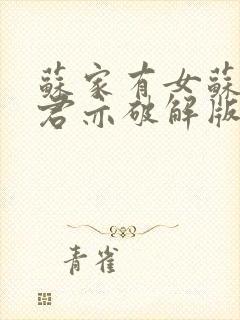 蘇家有女蘇
君亦破解版
青雀